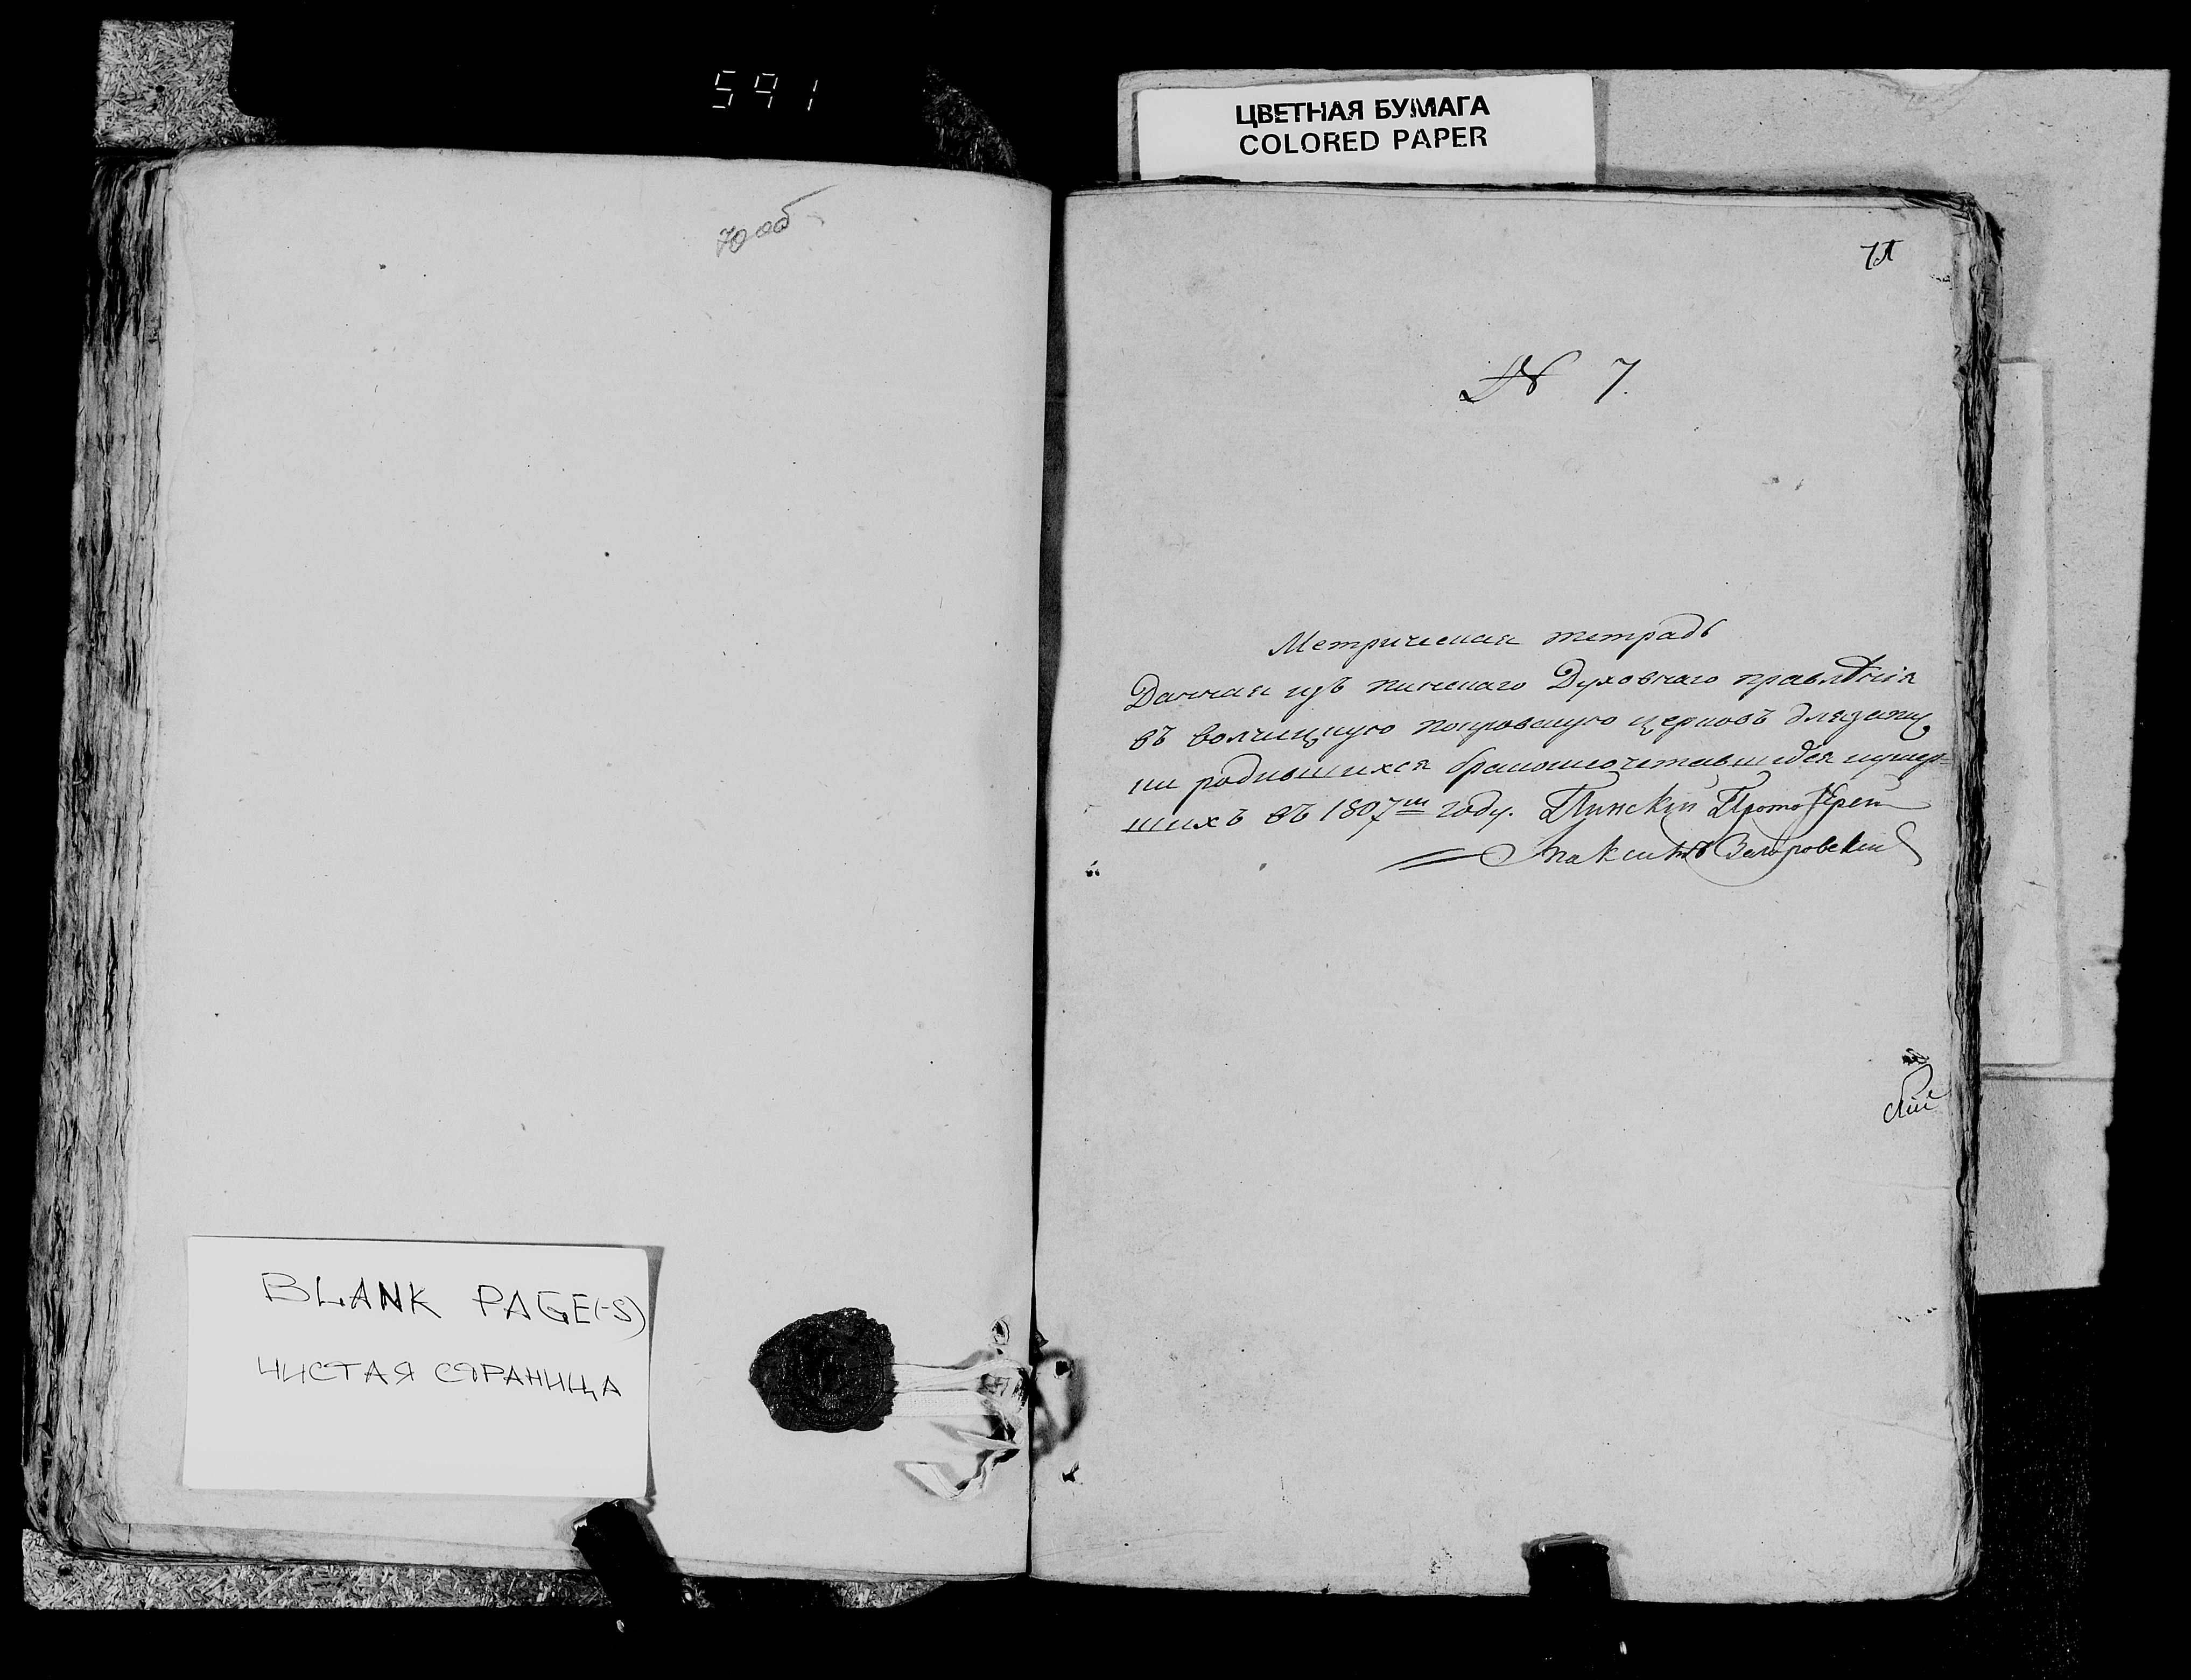 591
ЦВЕТНАЯ БУМАГА
COLORED PAPER
70 об
71
№ 7.
Метрическая тетрадь
Данная изъ пинскаго Духовнаго правлѣнія
въ волчицкую покровскую церковь для запи
ки родившихся бракомсочетавшихся иумер=
шихъ въ 1807м году. Пинскій ПротоІерей
Максимъ
скій
BLANK PAGE(-S)
ЧИСТАЯ СТРАНИЦА